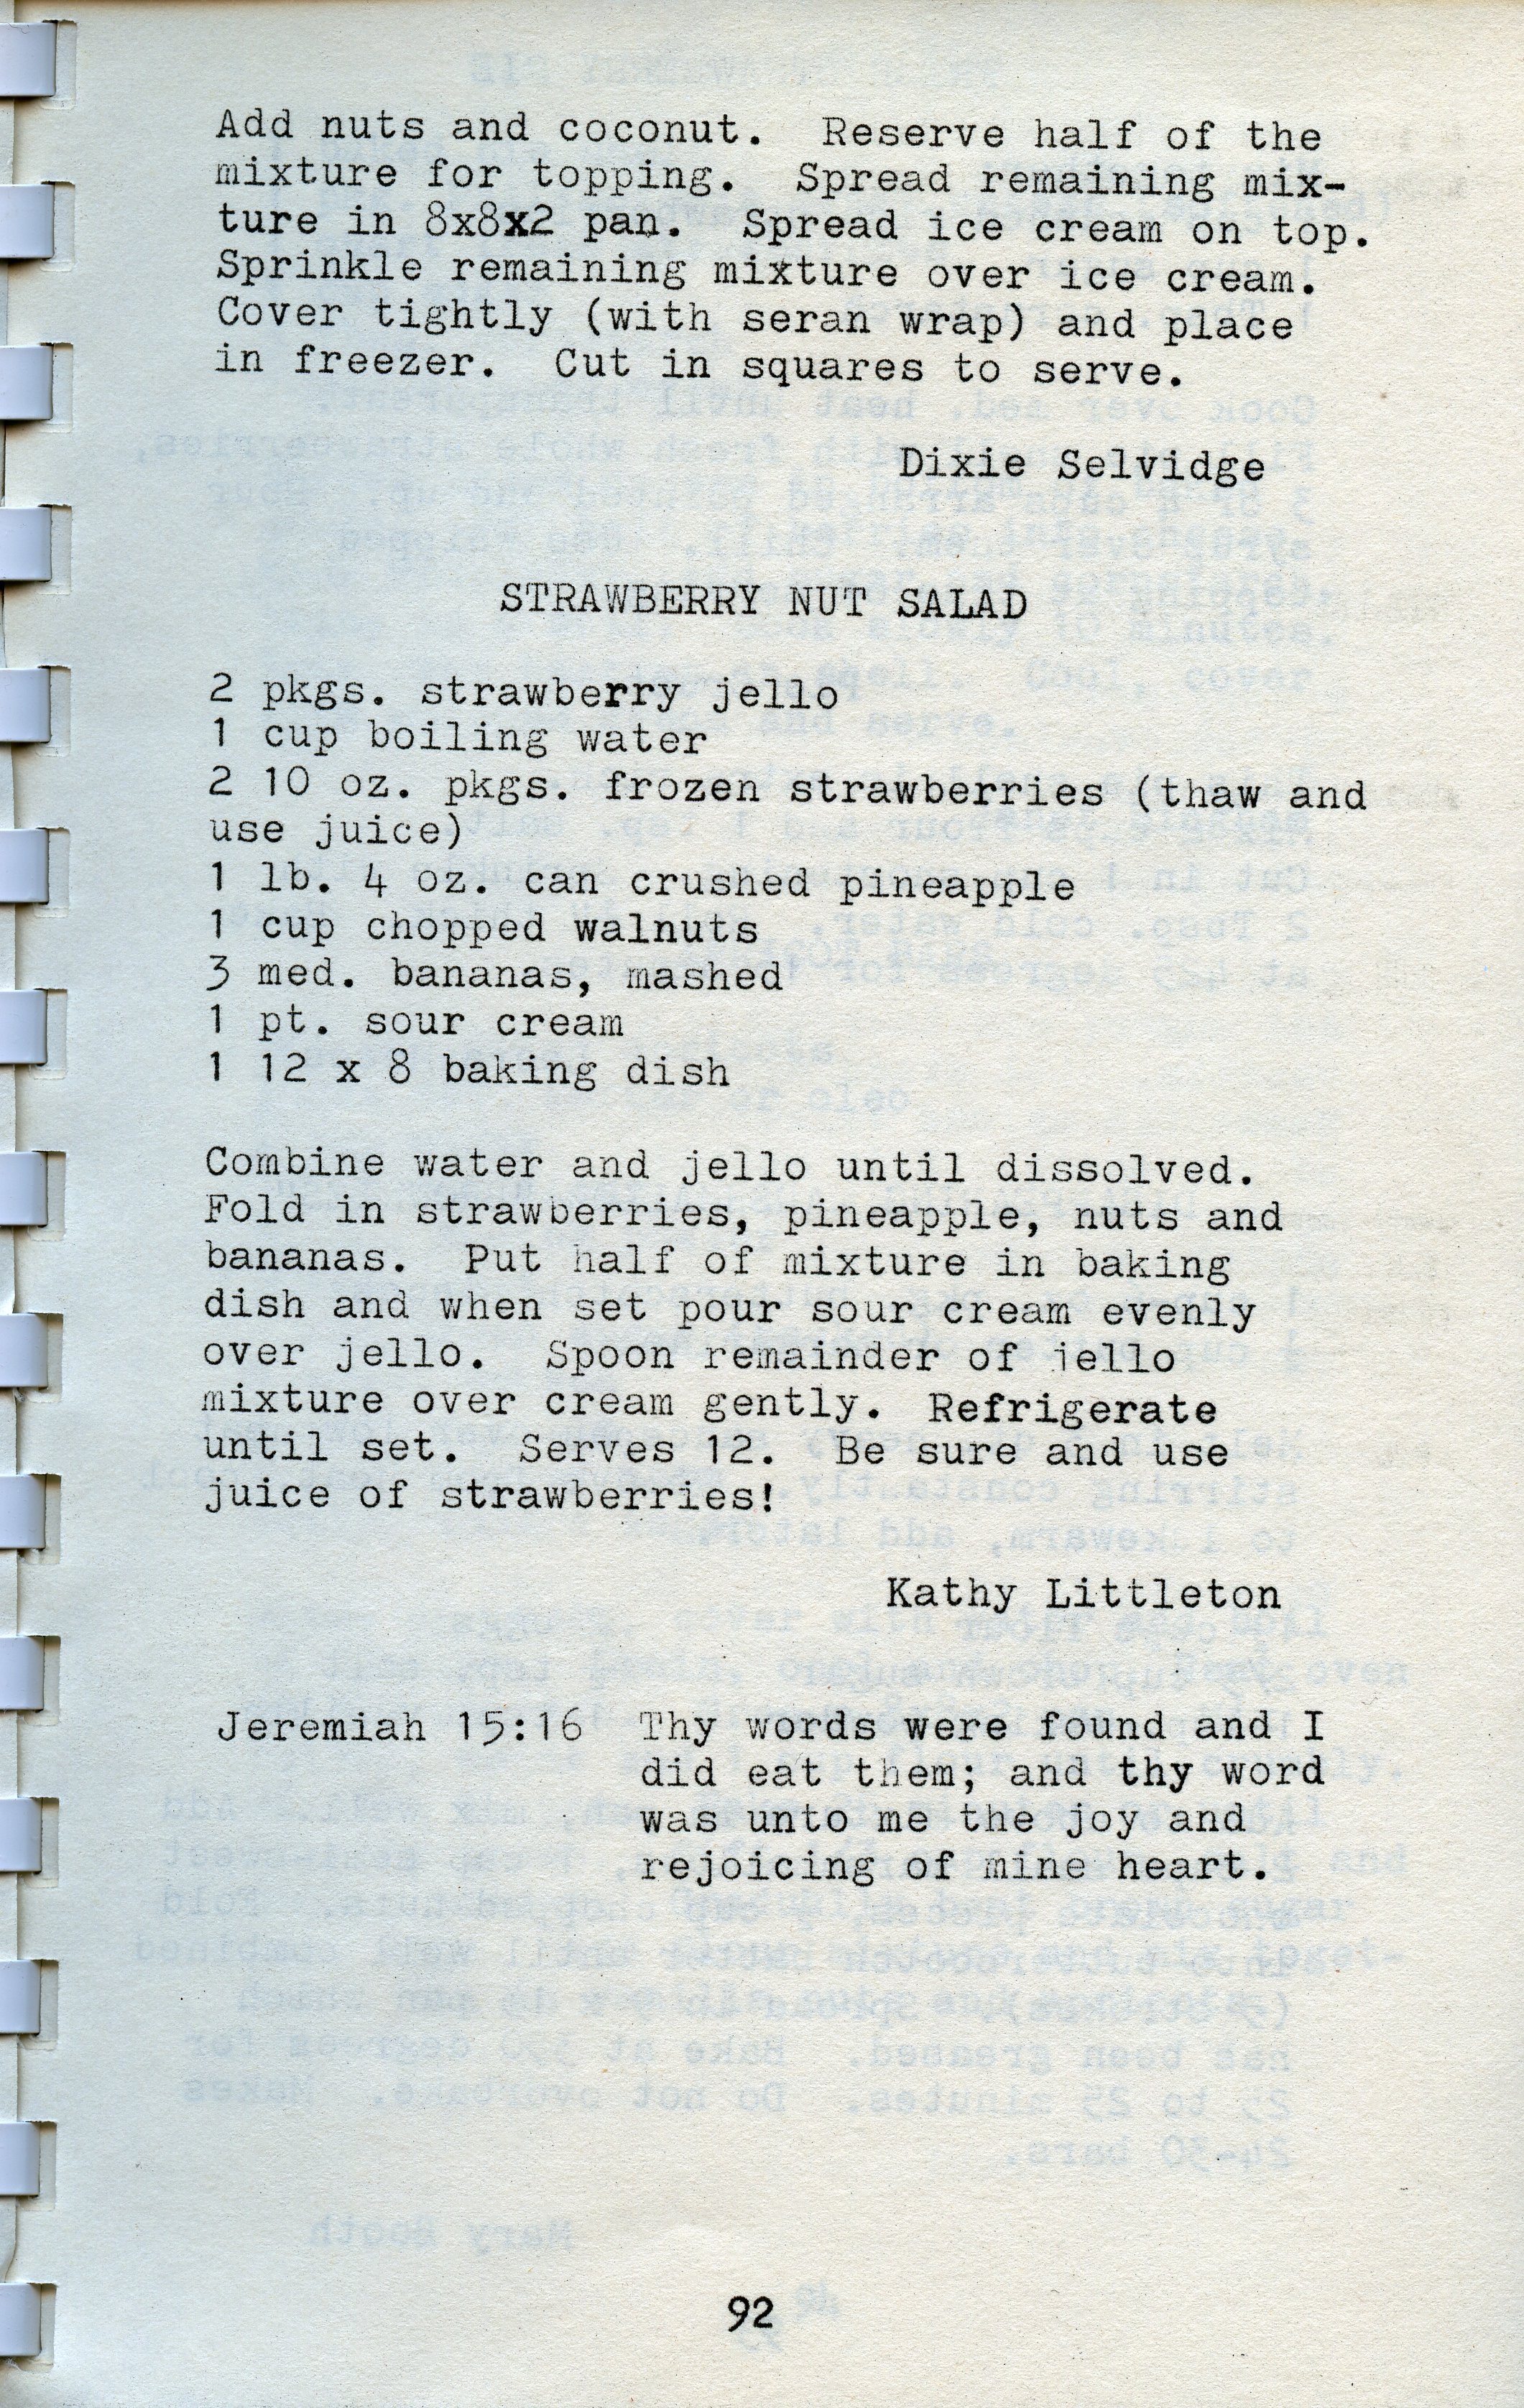 Add nuts and coconut. Reserve half of the
mixture for topping. Spread remaining mix-
ture in 8x8x2 pan. Spread ice cream on top.
Sprinkle remaining mixture over ice cream.
Cover tightly (with seran wrap) and place
in freezer. Cut in squares to serve.
Dixie Selvidge
STRAWBERRY NUT SALAD
2 pkgs. strawberry jello
1 cup boiling water
2 10 oz. pkgs. frozen strawberries (thaw and
use juice)
1 lb. 4 oz. can crushed pineapple
1 cup chopped walnuts
3 med. bananas, mashed
1 pt. sour cream
1 12 x 8 baking dish
Combine water and jello until dissolved.
Fold in strawberries, pineapple, nuts and
bananas. Put half of mixture in baking
dish and when set pour sour cream evenly
over jello. Spoon remainder of jello
mixture over cream gently. Refrigerate
until set. Serves 12. Be sure and use
juice of strawberries!
Kathy Littleton
Jeremiah 15:16 Thy words were found and I
did eat them; and thy word
was unto me the joy and
rejoicing of mine heart.
92